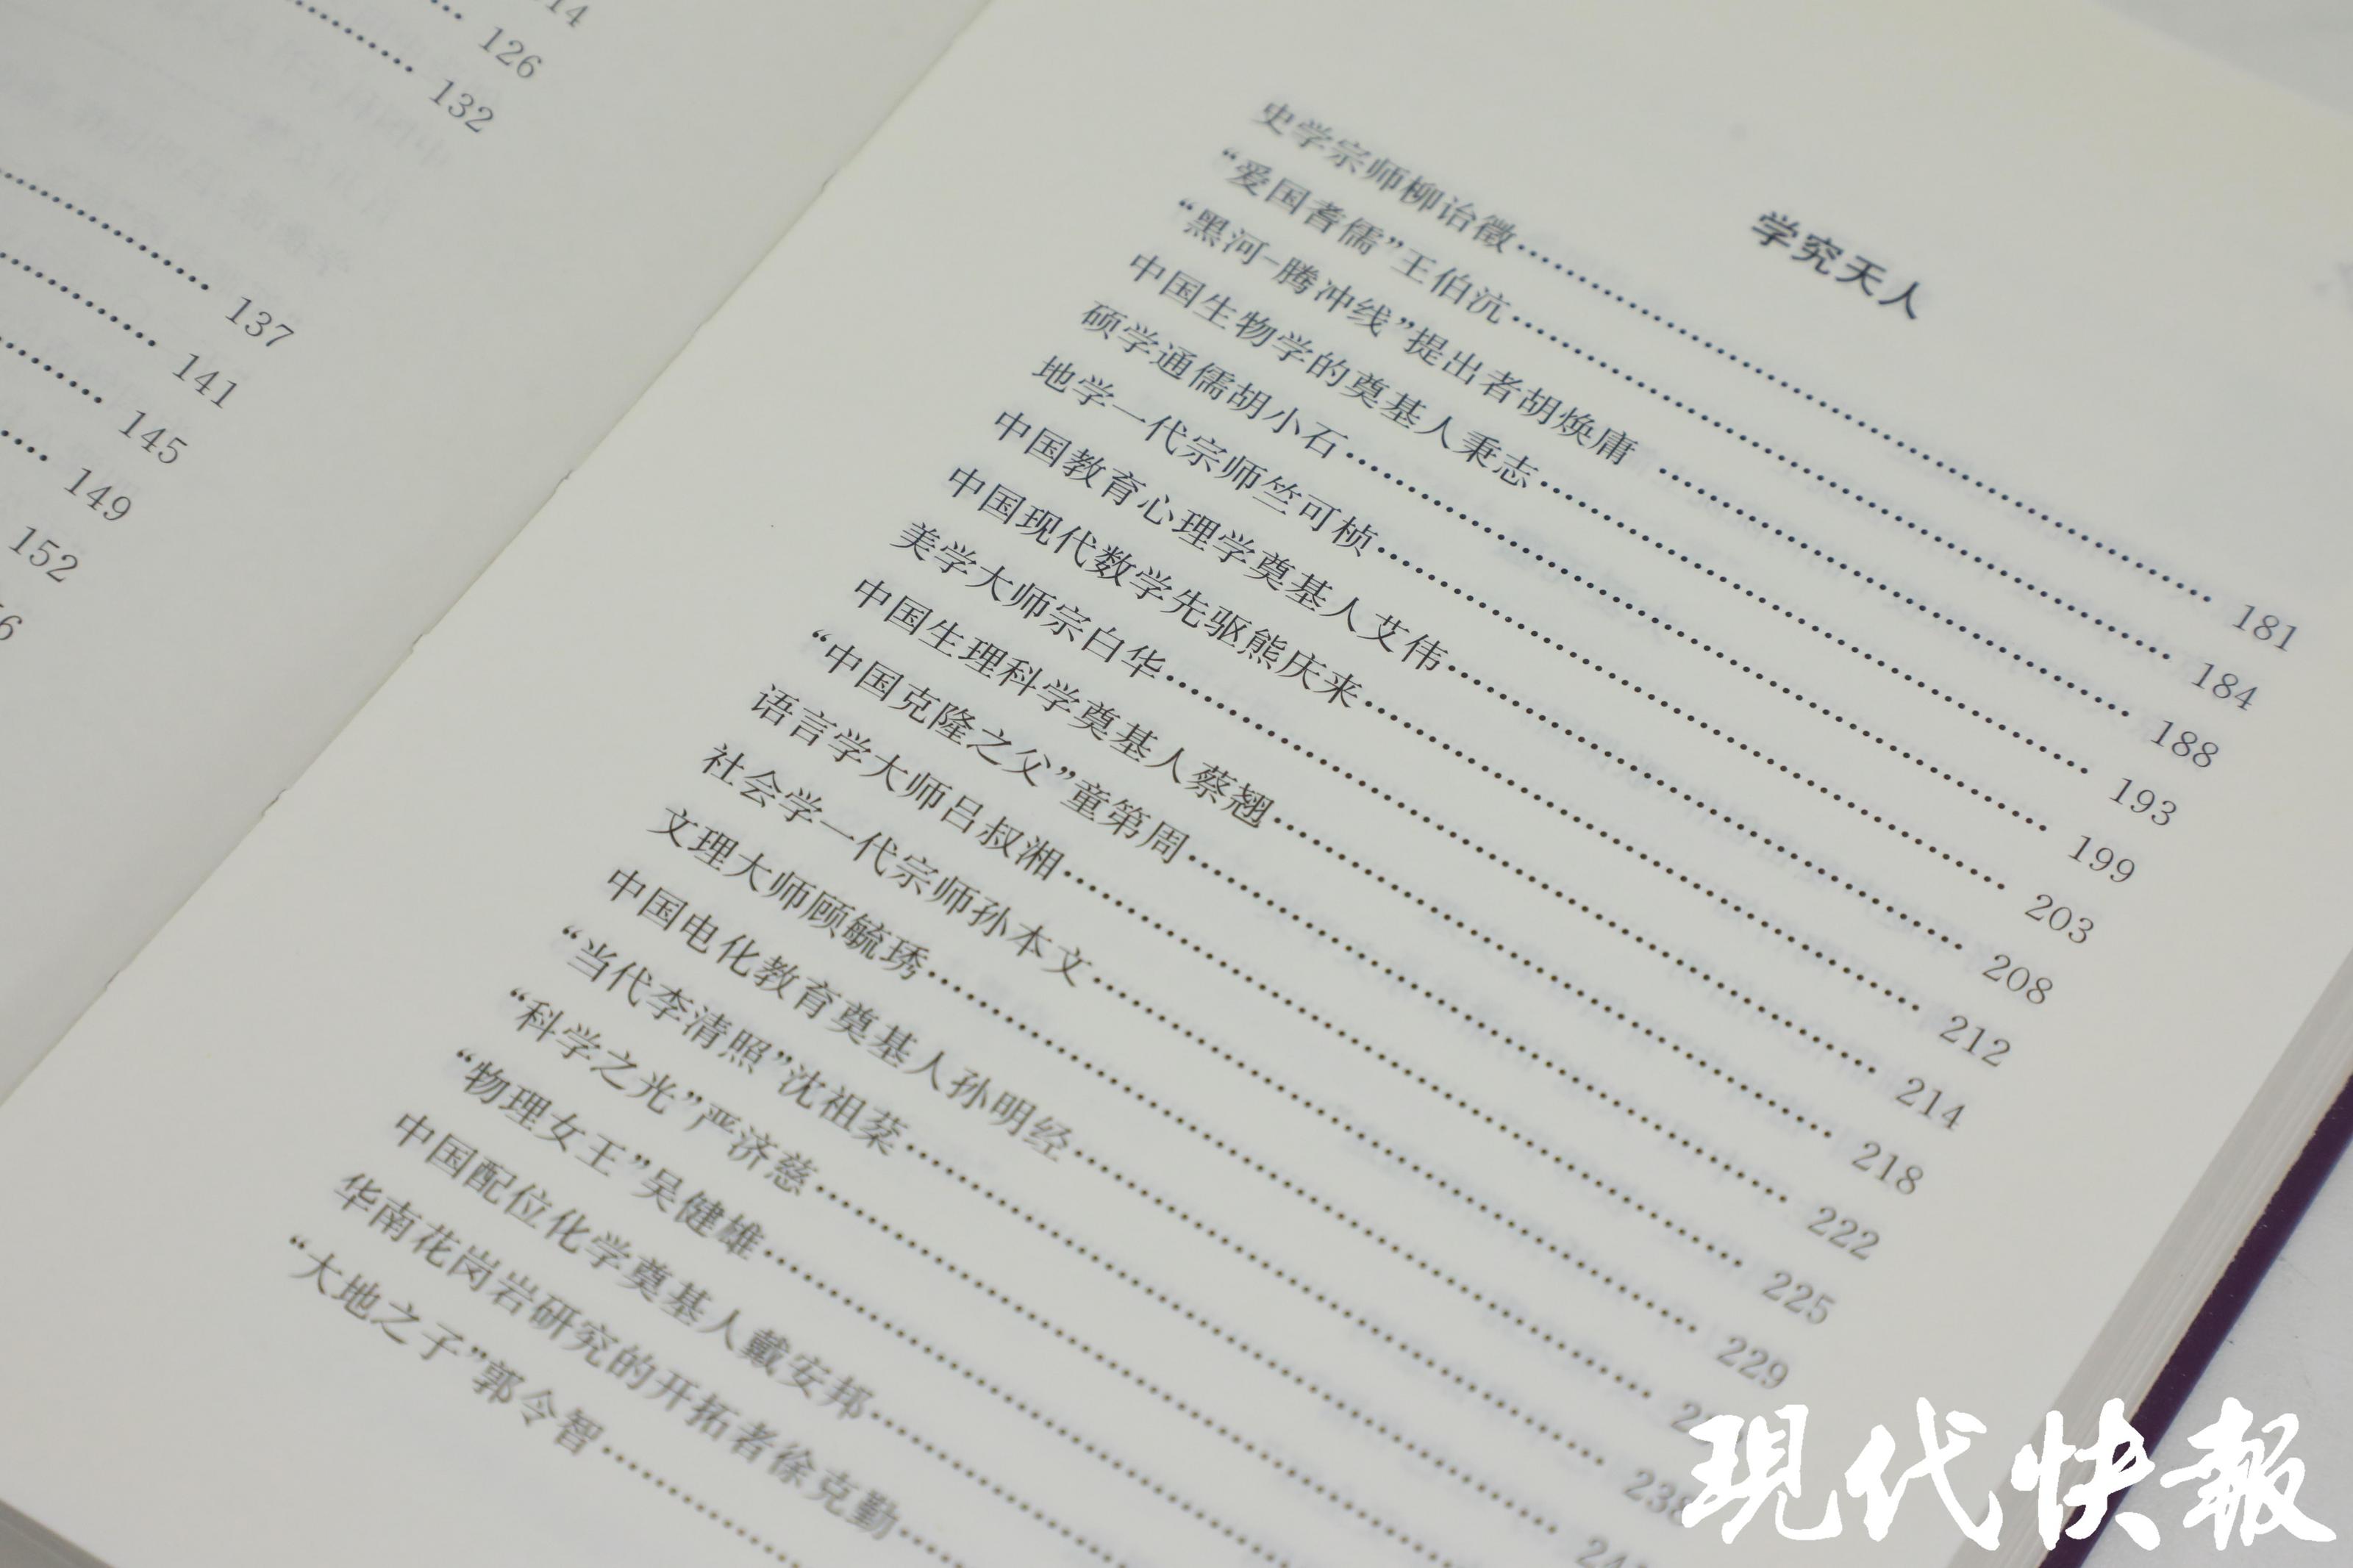 126
132
137
141
145
149
152
学究天人
史学宗师柳诒徵……181
“爱国耆儒”王伯沆……184
“黑河-腾冲线”提出者胡焕庸……188
中国生物学的奠基人秉志……193
硕学通儒胡小石……199
地学一代宗师竺可桢……203
中国教育心理学奠基人艾伟……208
中国现代数学先驱熊庆来……212
美学大师宗白华……214
中国生理科学奠基人蔡翘……218
“中国克隆之父”童第周……222
语言学大师吕叔湘……225
社会学一代宗师孙本文……229
文理大师顾毓琇……
中国电化教育奠基人孙明经……238
“当代李清照”沈祖棻……
“科学之光”严济慈……
“物理女王”吴健雄……
中国配位化学奠基人戴安邦……
华南花岗岩研究的开拓者徐克勤……
“大地之子”郭令智……
現代快報